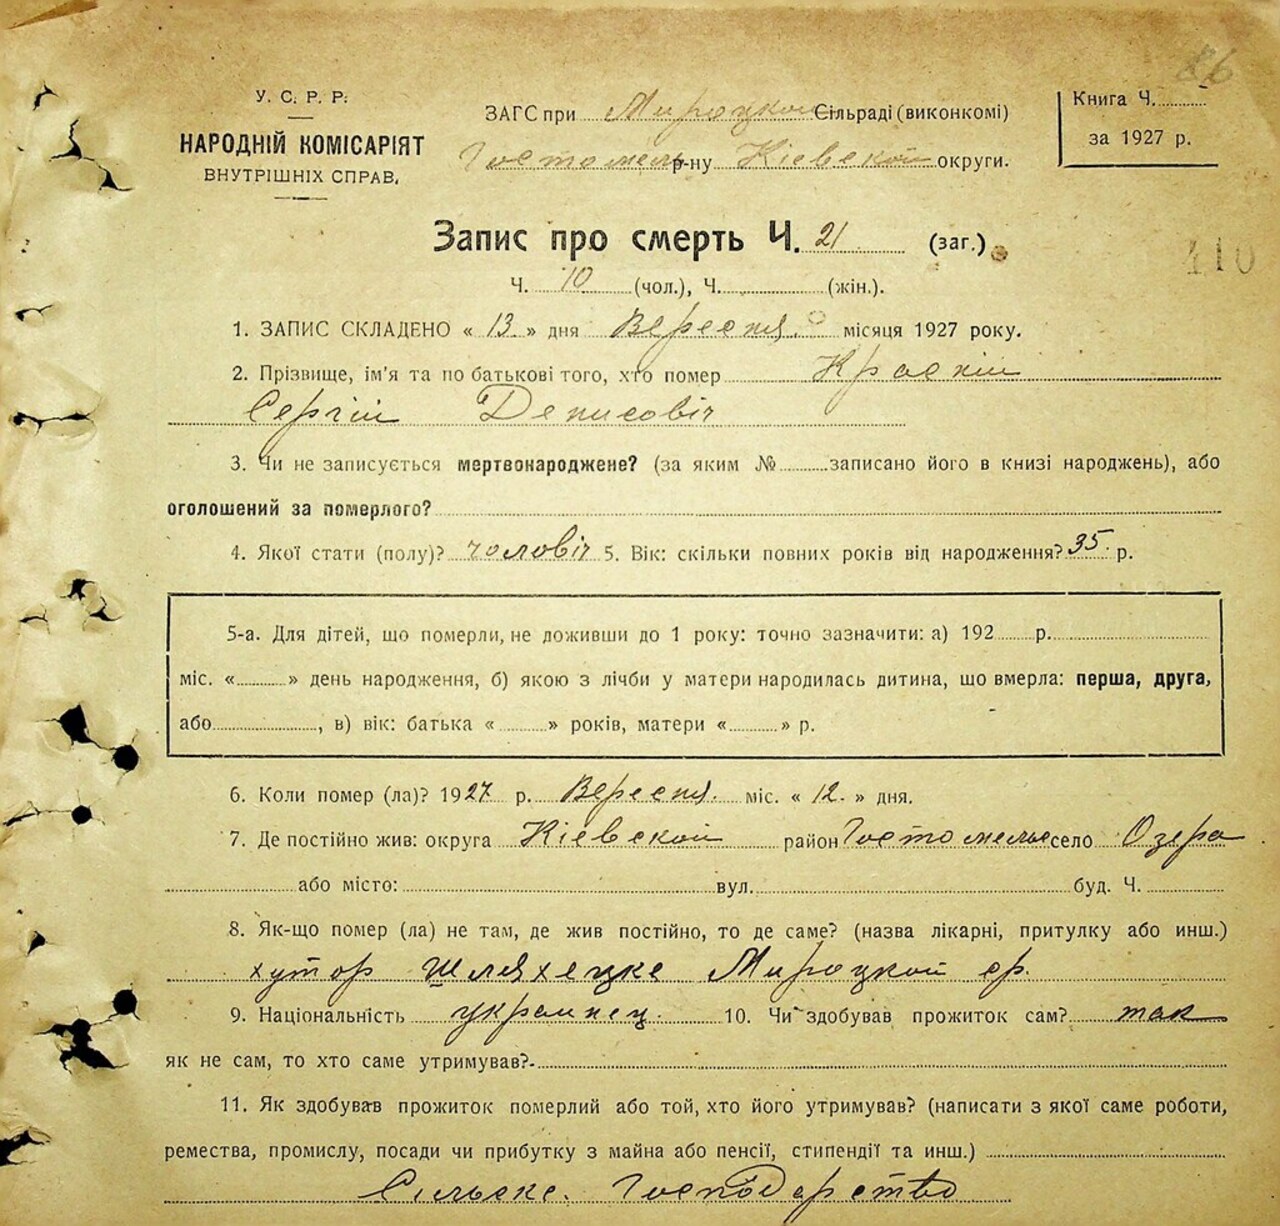 86
У. С. Р. Р.
НАРОДНІЙ КОМІСАРІЯТ
ВНУТРІШНІХ СПРАВ.
ЗАГС при Мироцкой Сільраді (виконкомі)
Гостомель р-ну Кіевской округи.
Книга Ч.
за 1927 р.
Запис про смерть Ч. 21 (заг.)
410
Ч. 10 (чол.), Ч. (жін.).
1. ЗАПИС СКЛАДЕНО « 13 » дня Вересня місяця 1927 року.
2. Прізвище, ім'я та по батькові того, хто помер Краскій
Сергій Денисовіч
3. Чи не записується мертвонароджене? (за яким № записано його в книзі народжень), або
оголошений за померлого?
4. Якої стати (полу)? чоловіч 5. Вік: скільки повних років від народження? 35 р.
5-а. Для дітей, що померли, не доживши до 1 року: точно зазначити: а) 192 р.
міс. « » день народження, б) якою з лічби у матери народилась дитина, що вмерла: перша, друга,
або , в) вік: батька « » років, матери « » р.
6. Коли помер (ла)? 1927 р. Вересня міс. « 12. » дня.
7. Де постійно жив: округа Кіевской район Гостомельс село Озера
або місто: вул. буд. Ч.
8. Як-що помер (ла) не там, де жив постійно, то де саме? (назва лікарні, притулку або инш.)
хутор Шляхецке Мироцкой ср.
9. Національність украинец 10. Чи здобував прожиток сам? так
як не сам, то хто саме утримував?
11. Як здобував прожиток померлий або той, хто його утримував? (написати з якої саме роботи,
ремества, промислу, посади чи прибутку з майна або пенсії, стипендії та инш.)
Сільске. Господерство